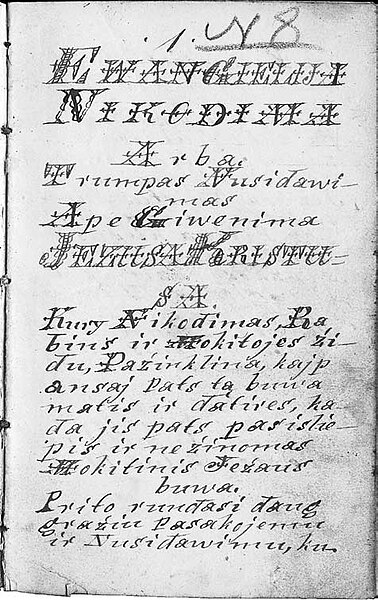 .1. N 8
EWANGIELIJI
NIKODIMA
Arba.
Trumpas Nusidawi-
mas
Ape Giwenima
JEZUSA KRISTU-
SA.
Kury Nikodimas, Ra
bins ir Mokitojes źi-
du, Pazinklina, kajp
ansaj Pats tą buwa
matis ir datires, ka-
da jis pats pasislie-
pis ir neźinomas
Mokitinis Jezaus
buwa.
Prito rundasi daug
graźiu Pasakojemu
ir Nusidawimu, ku.